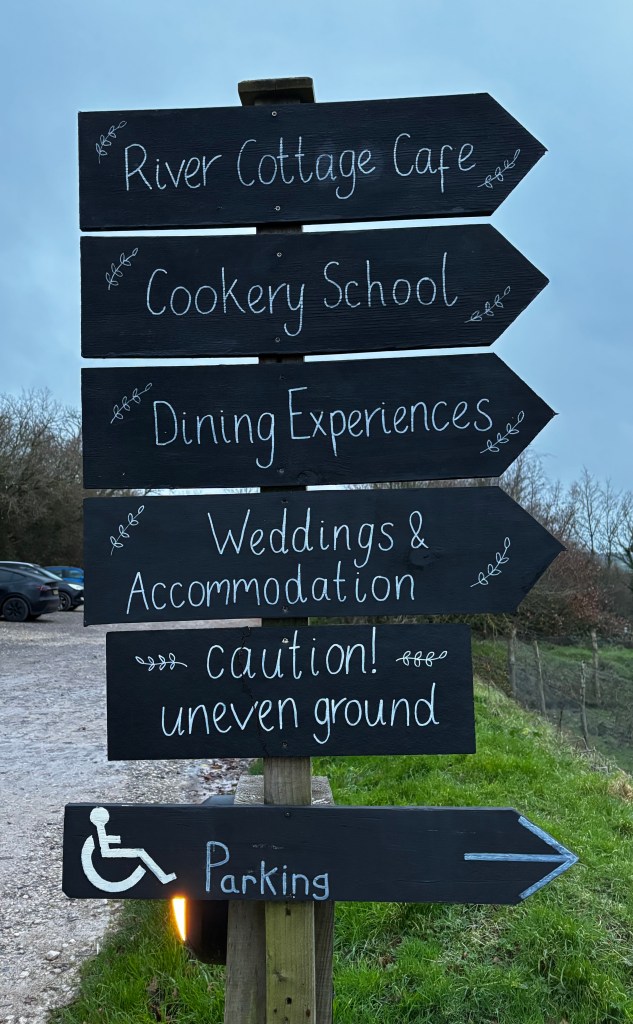 River Cottage Cafe
Cookery School
Dining Experiences
Weddings &
Accommodation
caution!
uneven ground
Parking